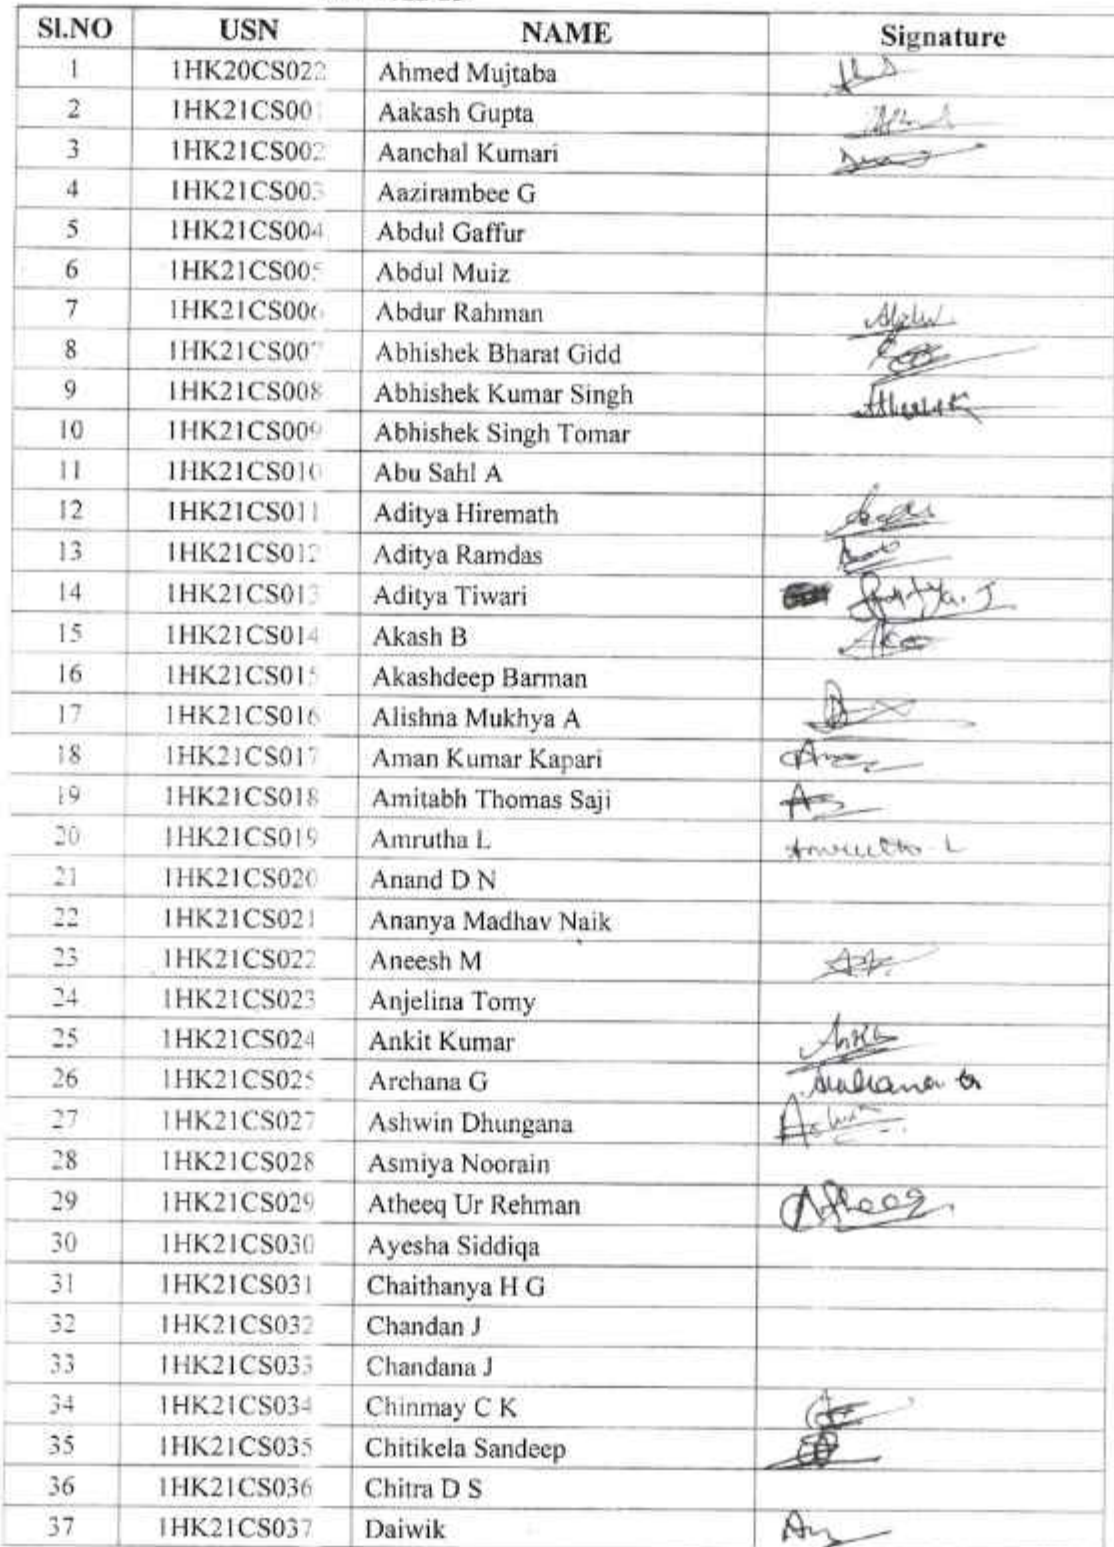 Sl.NO USN NAME Signature
1 1HK20CS022 Ahmed Mujtaba
2 1HK21CS001 Aakash Gupta
3 1HK21CS002 Aanchal Kumari
4 1HK21CS003 Aazirambee G
5 1HK21CS004 Abdul Gaffur
6 1HK21CS005 Abdul Muiz
7 1HK21CS006 Abdur Rahman
8 1HK21CS007 Abhishek Bharat Gidd
9 1HK21CS008 Abhishek Kumar Singh
10 1HK21CS009 Abhishek Singh Tomar
11 1HK21CS010 Abu Sahl A
12 1HK21CS011 Aditya Hiremath
13 1HK21CS012 Aditya Ramdas
14 1HK21CS013 Aditya Tiwari
15 1HK21CS014 Akash B
16 1HK21CS015 Akashdeep Barman
17 1HK21CS016 Alishna Mukhya A
18 1HK21CS017 Aman Kumar Kapari
19 1HK21CS018 Amitabh Thomas Saji
20 1HK21CS019 Amrutha L Amrutha L
21 1HK21CS020 Anand D N
22 1HK21CS021 Ananya Madhav Naik
23 1HK21CS022 Aneesh M
24 1HK21CS023 Anjelina Tomy
25 1HK21CS024 Ankit Kumar
26 1HK21CS025 Archana G Archana G
27 1HK21CS027 Ashwin Dhungana Ashwin
28 1HK21CS028 Asmiya Noorain
29 1HK21CS029 Atheeq Ur Rehman Atheeq
30 1HK21CS030 Ayesha Siddiqa
31 1HK21CS031 Chaithanya H G
32 1HK21CS032 Chandan J
33 1HK21CS033 Chandana J
34 1HK21CS034 Chinmay C K
35 1HK21CS035 Chitikela Sandeep
36 1HK21CS036 Chitra D S
37 1HK21CS037 Daiwik